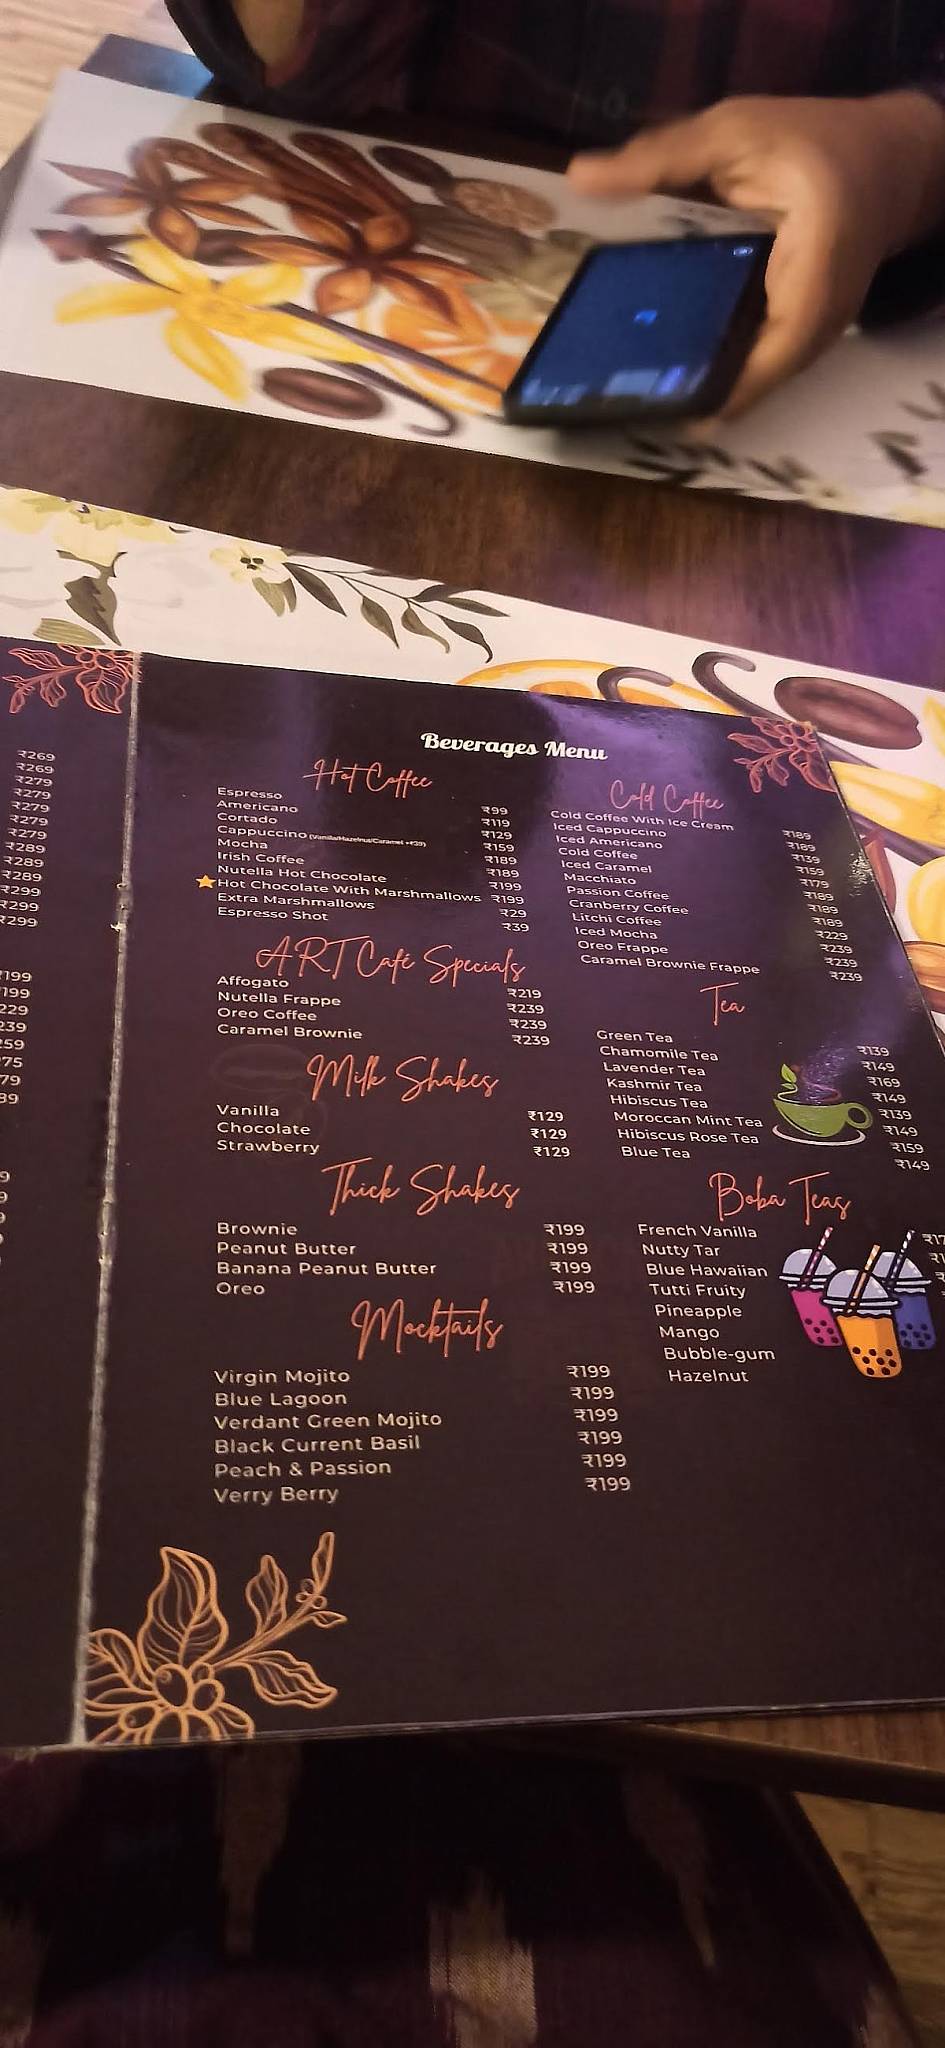 ₹269
₹269
₹279
₹279
₹279
₹279
₹279
₹289
₹289
₹289
₹299
₹299
₹299
₹199
₹199
Beverages Menu
Hot Coffee
Espresso ₹99
Americano ₹119
Cortado ₹129
Cappuccino (Vanilla/Hazelnut/Caramel +₹39) ₹159
Mocha ₹189
Irish Coffee ₹189
Nutella Hot Chocolate ₹199
Hot Chocolate With Marshmallows ₹199
Extra Marshmallows ₹29
Espresso Shot ₹39
ART Café Specials
Affogato ₹219
Nutella Frappe ₹239
Oreo Coffee ₹239
Caramel Brownie ₹239
Milk Shakes
Vanilla ₹129
Chocolate ₹129
Strawberry ₹129
Thick Shakes
Brownie ₹199
Peanut Butter ₹199
Banana Peanut Butter ₹199
Oreo ₹199
Mocktails
Virgin Mojito ₹199
Blue Lagoon ₹199
Verdant Green Mojito ₹199
Black Current Basil ₹199
Peach & Passion ₹199
Verry Berry ₹199
Cold Coffee
Cold Coffee With Ice Cream ₹189
Iced Cappuccino ₹189
Iced Americano ₹139
Cold Coffee ₹159
Iced Caramel
Macchiato ₹179
Passion Coffee ₹189
Cranberry Coffee ₹189
Litchi Coffee ₹189
Iced Mocha ₹229
Oreo Frappe ₹239
Caramel Brownie Frappe ₹239
₹239
Tea
Green Tea ₹139
Chamomile Tea ₹149
Lavender Tea ₹169
Kashmir Tea ₹149
Hibiscus Tea ₹139
Moroccan Mint Tea ₹149
Hibiscus Rose Tea ₹159
Blue Tea ₹149
Boba Teas
French Vanilla
Nutty Tar
Blue Hawaiian
Tutti Fruity
Pineapple
Mango
Bubble-gum
Hazelnut